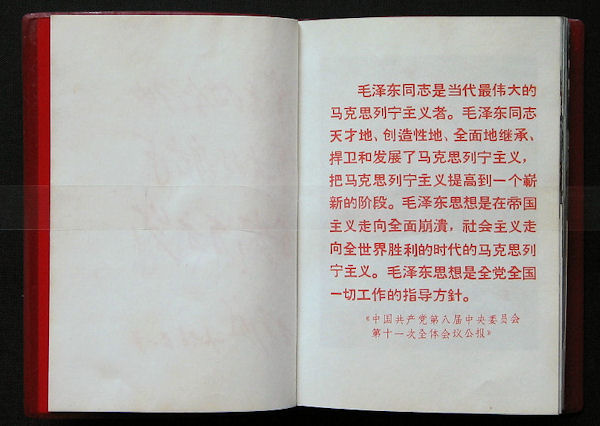 毛泽东同志是当代最伟大的
马克思列宁主义者。毛泽东同志
天才地、创造性地、全面地继承、
捍卫和发展了马克思列宁主义，
把马克思列宁主义提高到一个崭
新的阶段。毛泽东思想是在帝国
主义走向全面崩溃，社会主义走
向全世界胜利的时代的马克思列
宁主义。毛泽东思想是全党全国
一切工作的指导方針。
《中国共产党第八届中央委员会
第十一次全体会议公报》